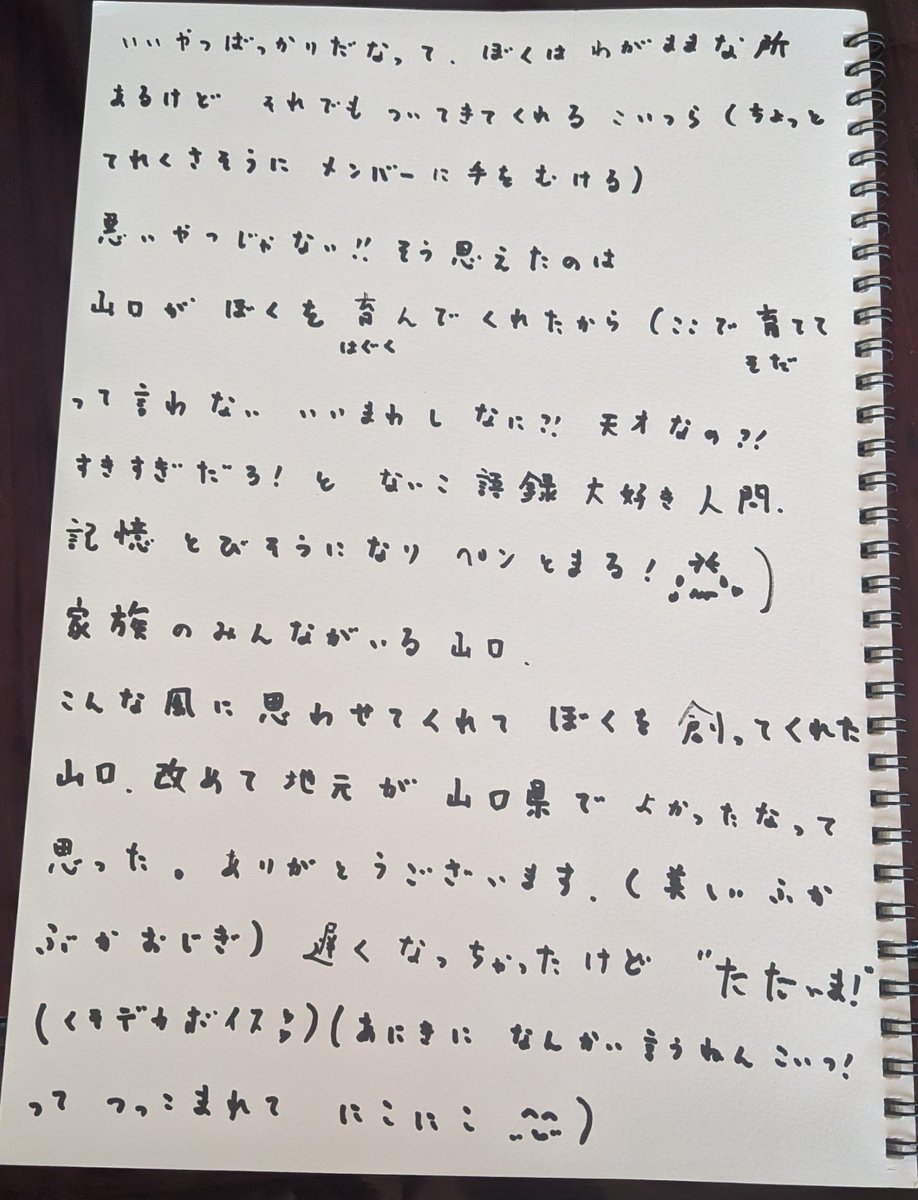 いいやつばっかりだなって、ぼくは わがままな所
あるけど それでも ついてきてくれる こいつら（ちょっと
てれくさそうに メンバーに手を むける）
悪いやつじゃない!! そう思えたのは
山口が ぼくを 育んでくれたから（ここで 育てて
はぐく そだ
って言わない いいまわしなに?! 天才なの?!
すきすぎだろ! と ないこ語録 大好き人間、
記憶とびそうになり ペンとまる! )
家族のみんながいる山口、
こんな風に思わせてくれて ぼくを 創ってくれた
山口、改めて地元が 山口県で よかったなって
思った。ありがとうございます、（美しい ふか
ぶかおじぎ） 遅くなっちゃったけど "ただいま!"
（くそデカボイス）（あにきに なんかい言うねん こいつ!
って つっこまれて にこにこ ）